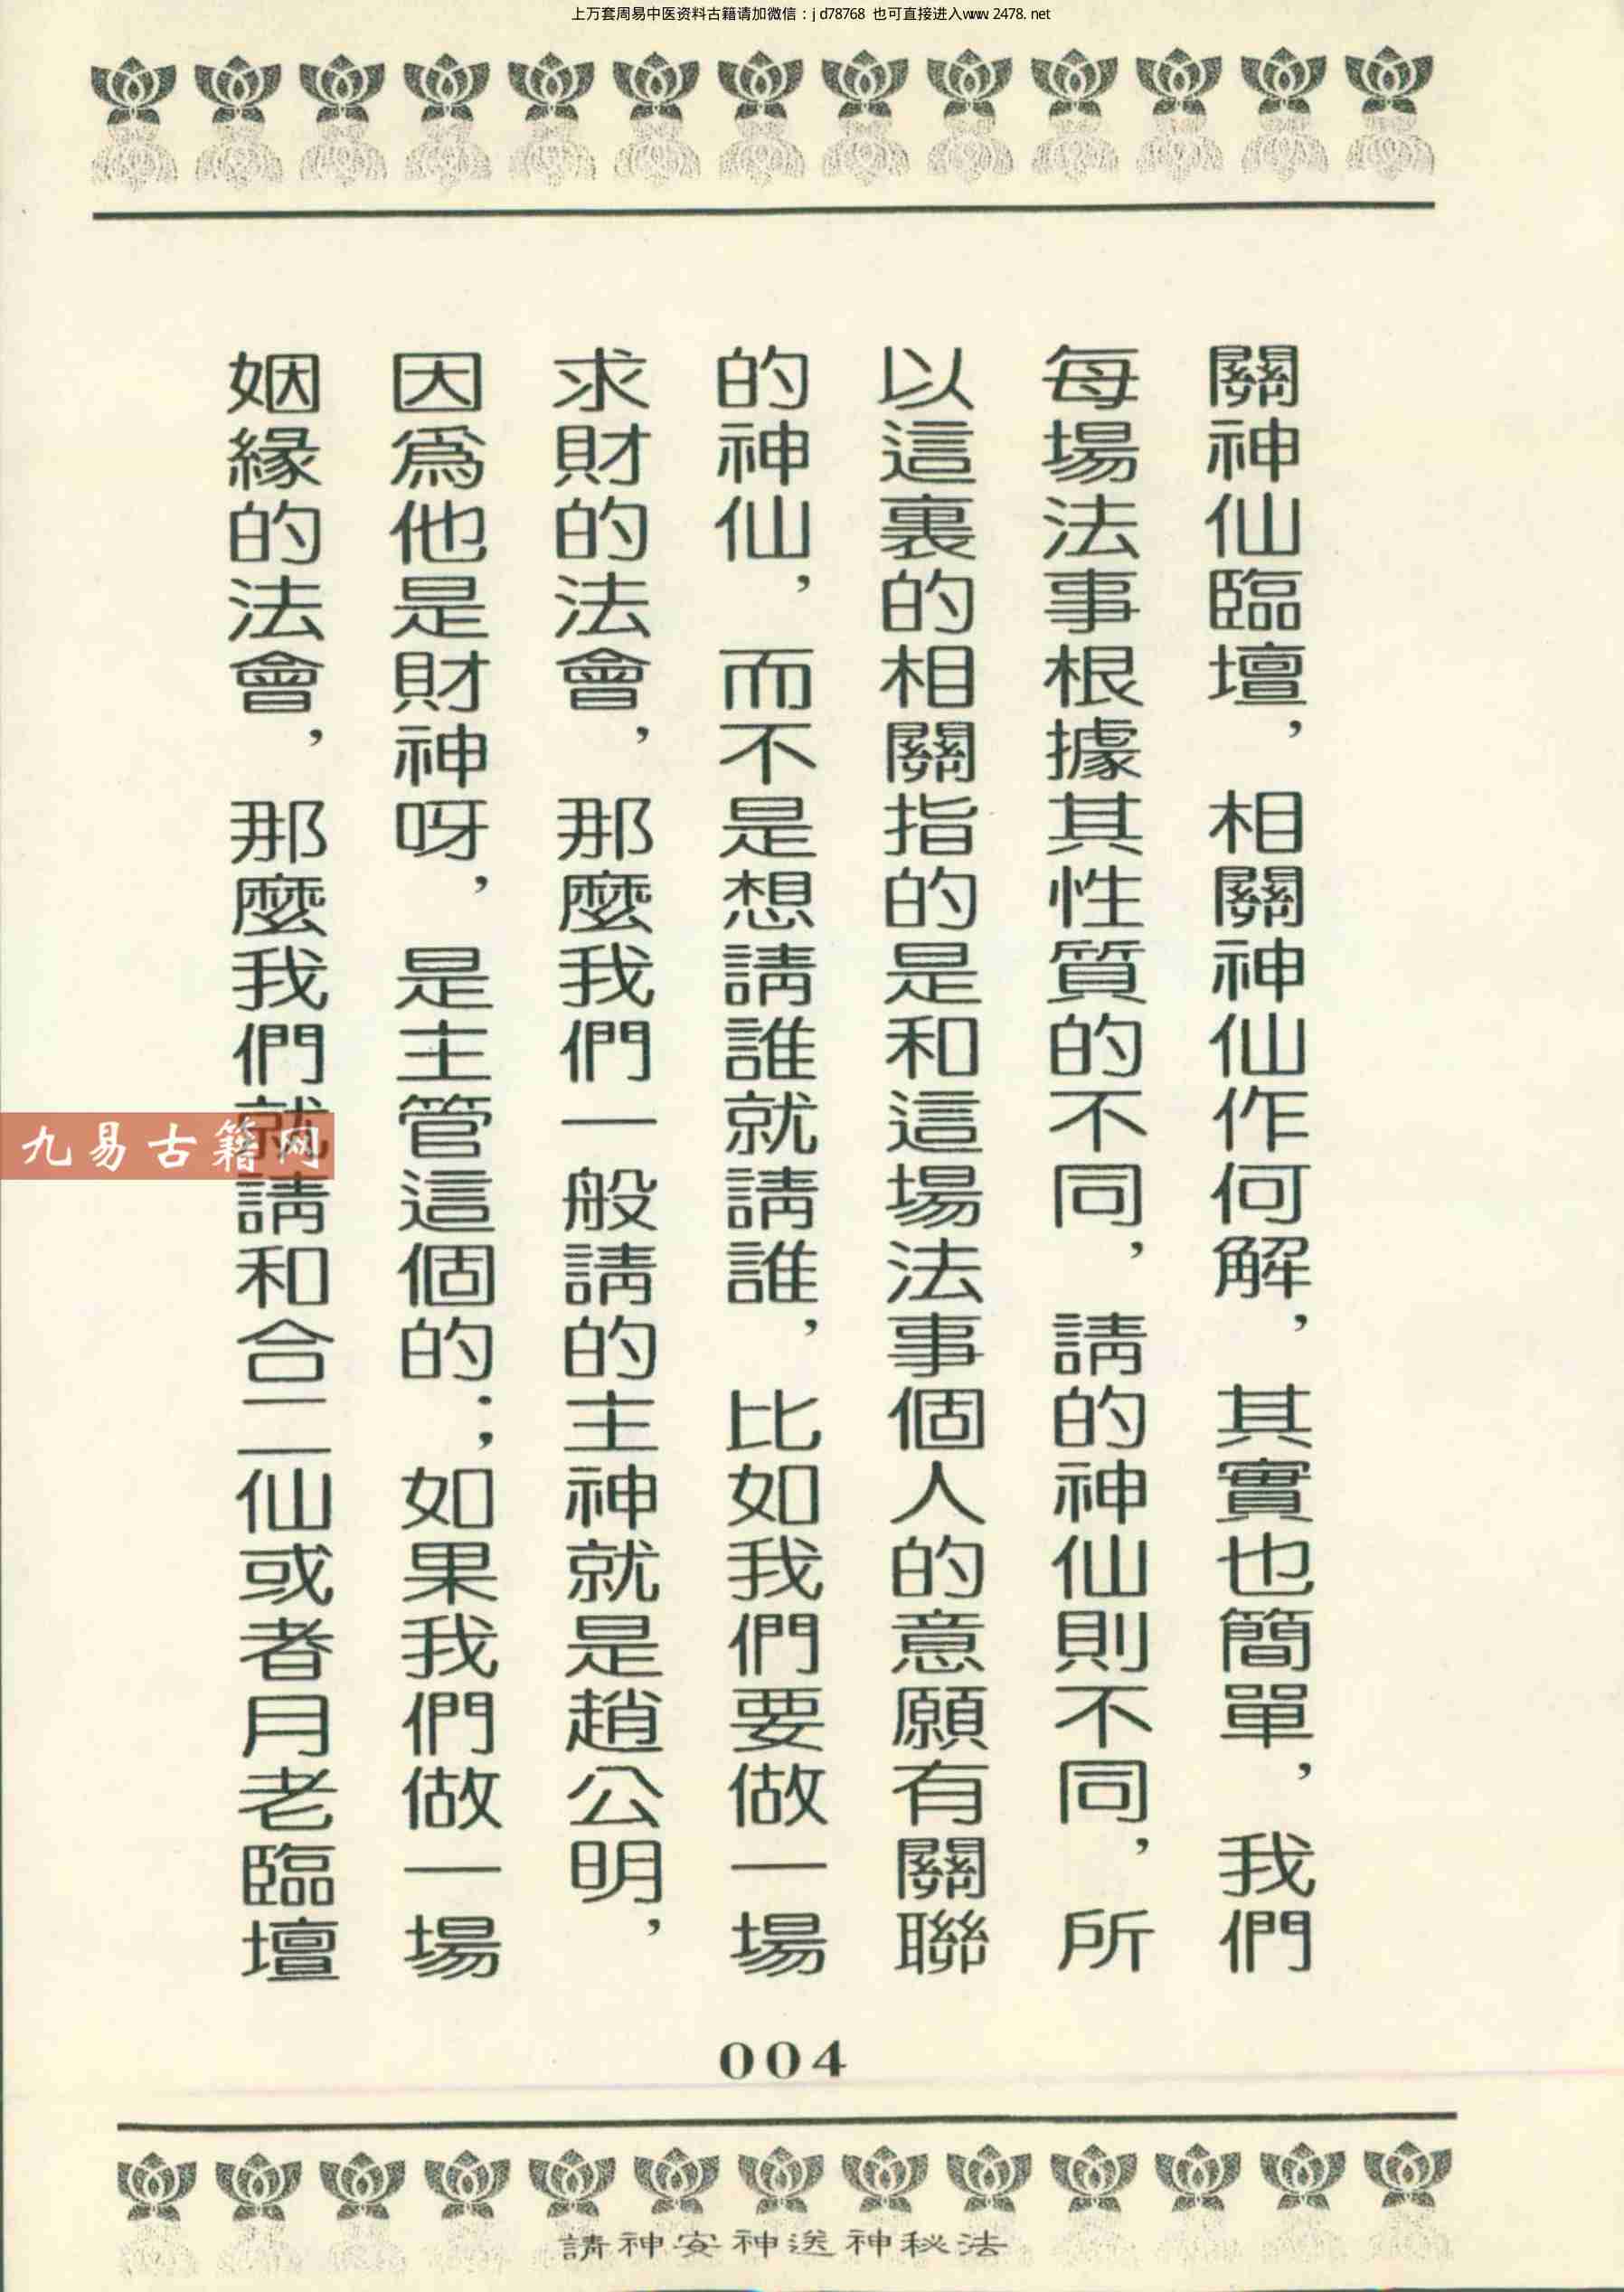 上万套周易中医资料古籍请加微信：jd78768 也可直接进入www.2478.net
關神仙臨壇，相關神仙作何解，其實也簡單，我們
每場法事根據其性質的不同，請的神仙則不同，所
以這裏的相關指的是和這場法事個人的意願有關聯
的神仙，而不是想請誰就請誰，比如我們要做一場
求財的法會，那麼我們一般請的主神就是趙公明，
因爲他是財神呀，是主管這個的；如果我們做一場
姻緣的法會，那麼我們就請和合二仙或者月老臨壇
九易古籍网
004
請神安神送神秘法